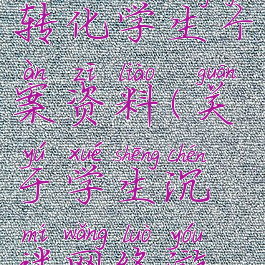 转化学生个
àn zī liào guān
案资料(关
yú xué shēng chén
于学生沉
mí wǎng luò yóu
迷网络游